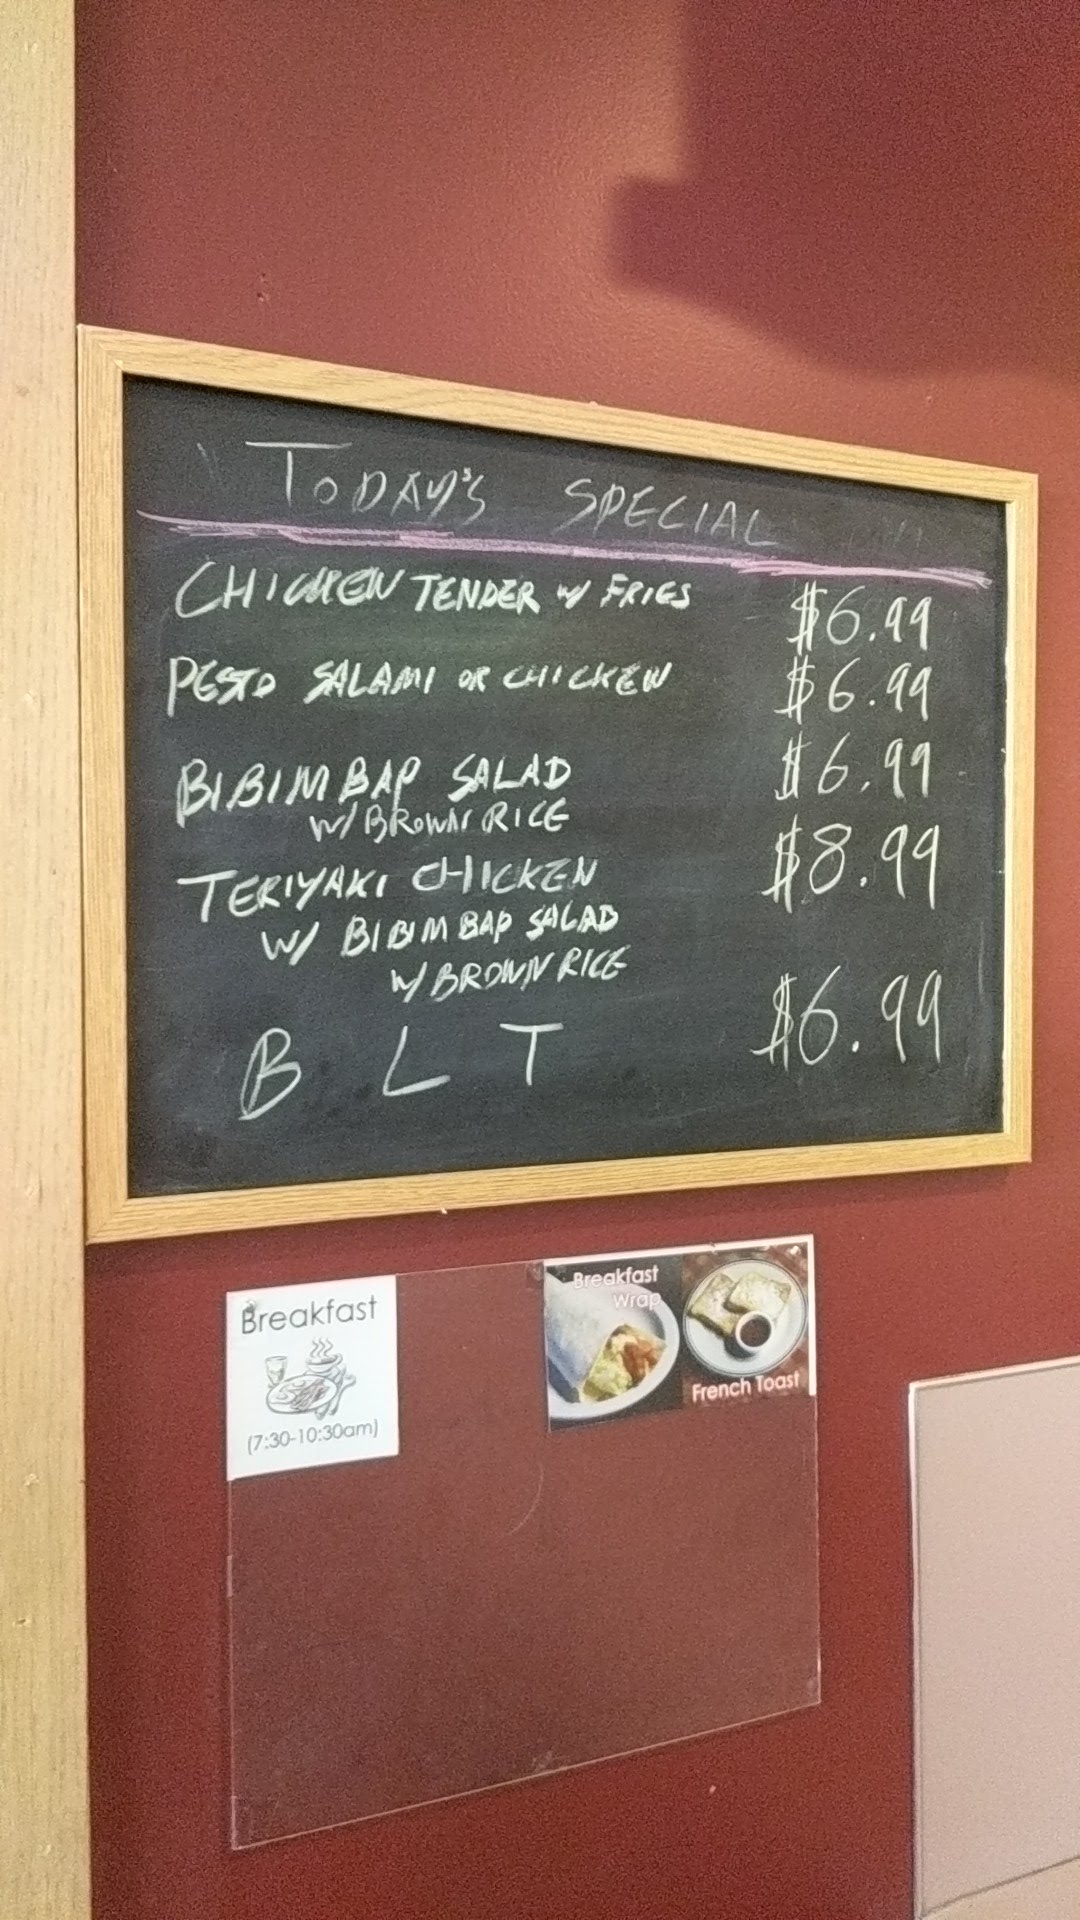 TODAY'S SPECIAL
CHICKEN TENDER W/ FRIES $6.99
PESTO SALAMI OR CHICKEN $6.99
BIBIMBAP SALAD $6.99
W/ BROWN RICE
TERIYAKI CHICKEN $8.99
W/ BIBIMBAP SALAD
W/ BROWN RICE
B L T $6.99
Breakfast
(7:30-10:30am)
Breakfast
Wrap
French Toast